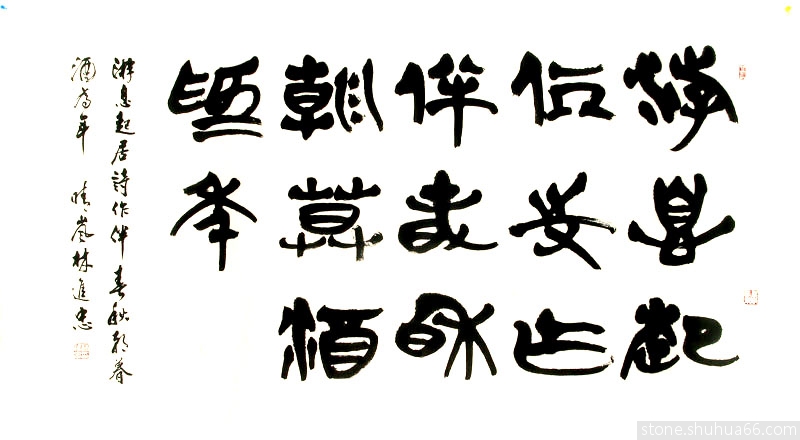 游息起
居詩作
伴春秋
朝暮酒
為年
游息起居詩作伴春秋朝暮
酒為年 晴嵐林進忠
stone.shuhua66.com